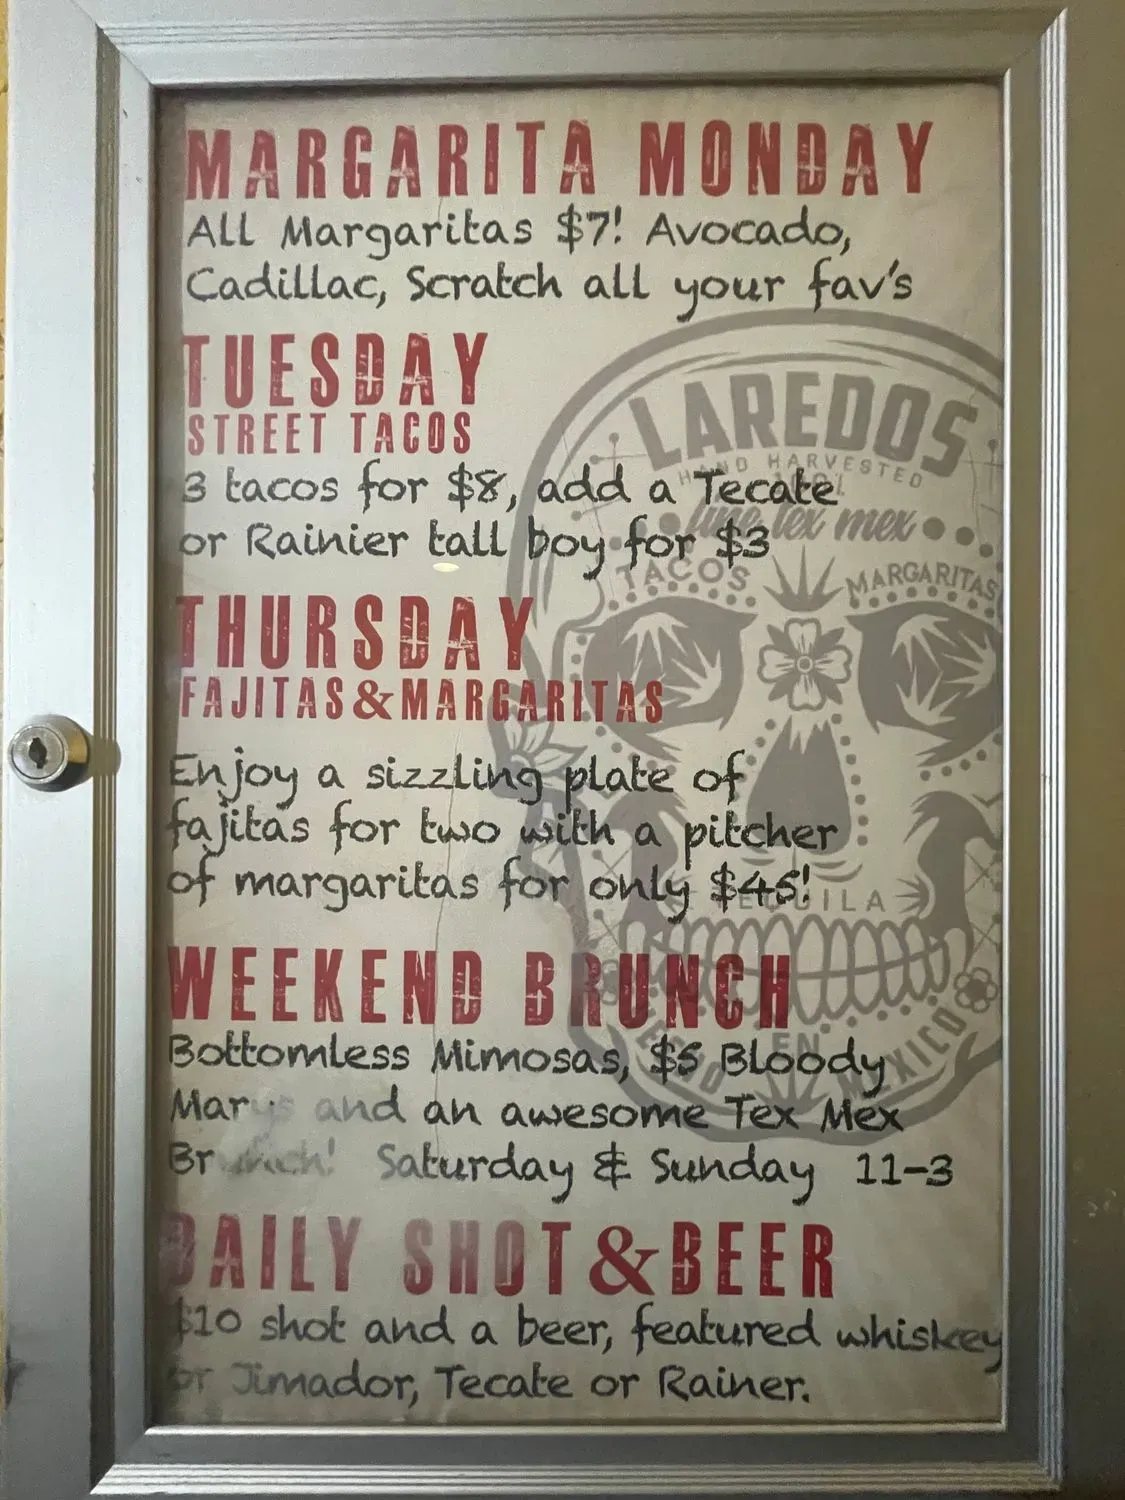 MARGARITA MONDAY
All Margaritas $7! Avocado,
Cadillac, Scratch all your fav's
TUESDAY
STREET TACOS
3 tacos for $8, add a Tecate
or Rainier tall boy for $3
THURSDAY
FAJITAS&MARGARITAS
Enjoy a sizzling plate of
fajitas for two with a pitcher
of margaritas for only $45!
WEEKEND BRUNCH
Bottomless Mimosas, $5 Bloody
Marys and an awesome Tex Mex
Brunch! Saturday & Sunday 11-3
DAILY SHOT&BEER
$10 shot and a beer, featured whiskey
or Jimador, Tecate or Rainer.
LAREDOS
HAND HARVESTED
fine tex mex
TACOS
MARGARITAS
TEQUILA
HECHO EN MEXICO